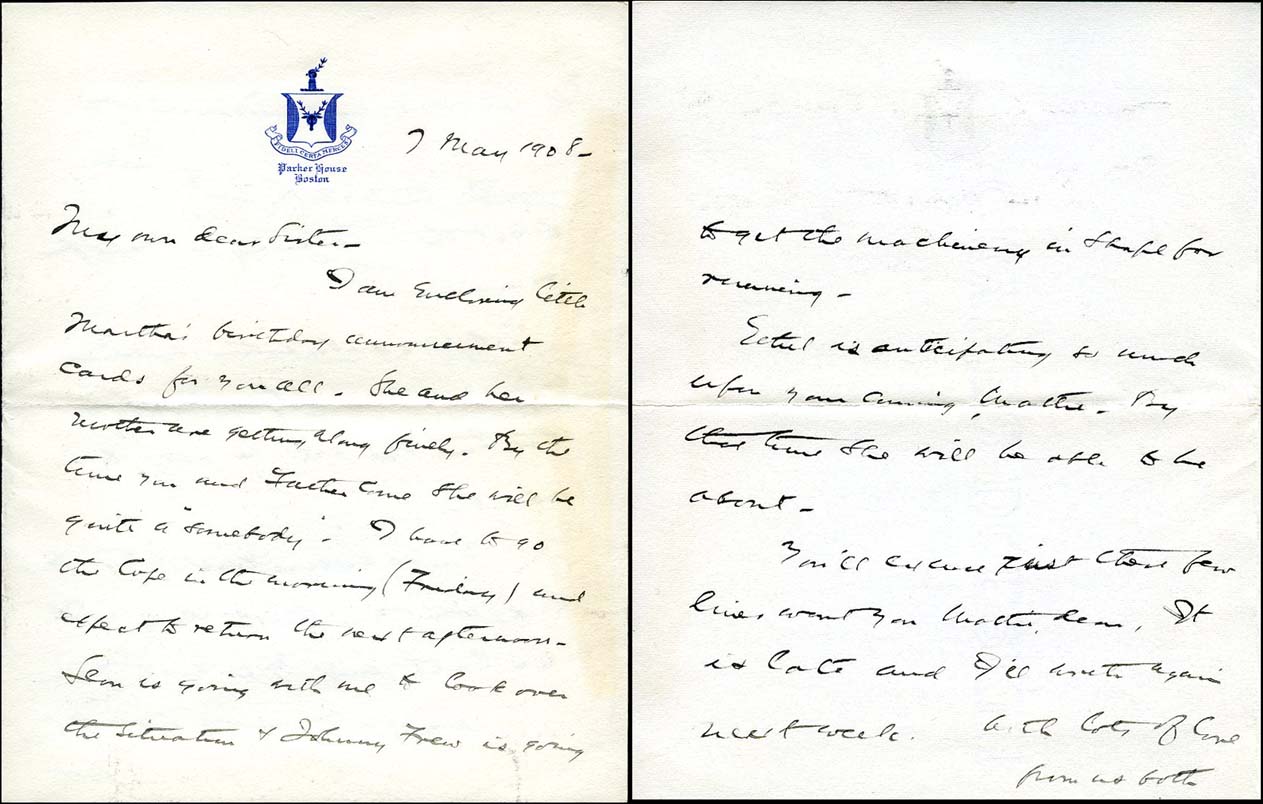 FIDELI CERTA MERCES
Parker House
Boston
7 May 1908-
My own dear Sister-
I am Enclosing little
Martha's birthday announcement
cards for you all. She and her
mother are getting along finely. By the
time you and Father come She will be
quite a "somebody". I have to go
the Cape in the morning (Friday) and
expect to return the next afternoon-
Leon is going with me to look over
the situation & Johnny Frew is going
to get the machinery in shape for
running-
Ethel is anticipating so much
upon your coming, Mattie. By
that time She will be able to be
about-
You'll excuse just these few
lines wont you Mattie, dear, It
is late and I'll write again
next week. With lots of love
from us both